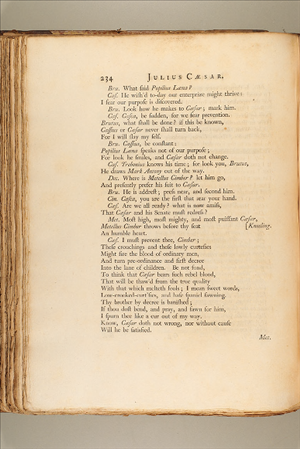 234 JULIUS CÆSAR.
Bru. What said Popilius Læna?
Cas. He wish'd to-day our enterprize might thrive:
I fear our purpose is discovered.
Bru. Look how he makes to Cæsar; mark him.
Cas. Casca, be sudden, for we fear prevention.
Brutus, what shall be done? if this be known,
Cassius or Cæsar never shall turn back,
For I will slay my self.
Bru. Cassius, be constant:
Popilius Læna speaks not of our purpose;
For look he smiles, and Cæsar doth not change.
Cas. Trebonius knows his time; for look you, Brutus,
He draws Mark Antony out of the way.
Dec. Where is Metellus Cimber? let him go,
And presently prefer his suit to Cæsar.
Bru. He is addrest; press near, and second him.
Cin. Casca, you are the first that rear your hand.
Cæs. Are we all ready? what is now amiss,
That Cæsar and his Senate must redress?
Met. Most high, most mighty, and most puissant Cæsar,
Metellus Cimber throws before thy seat [Kneeling.
An humble heart.
Cæs. I must prevent thee, Cimber;
These crouchings and these lowly curtesies
Might fire the blood of ordinary men,
And turn pre-ordinance and first decree
Into the lane of children. Be not fond,
To think that Cæsar bears such rebel blood,
That will be thaw'd from the true quality
With that which melteth fools; I mean sweet words,
Low-crooked-curt'sies, and base spaniel fawning.
Thy brother by decree is banished;
If thou dost bend, and pray, and fawn for him,
I spurn thee like a cur out of my way.
Know, Cæsar doth not wrong, nor without cause
Will he be satisfied.
Met.